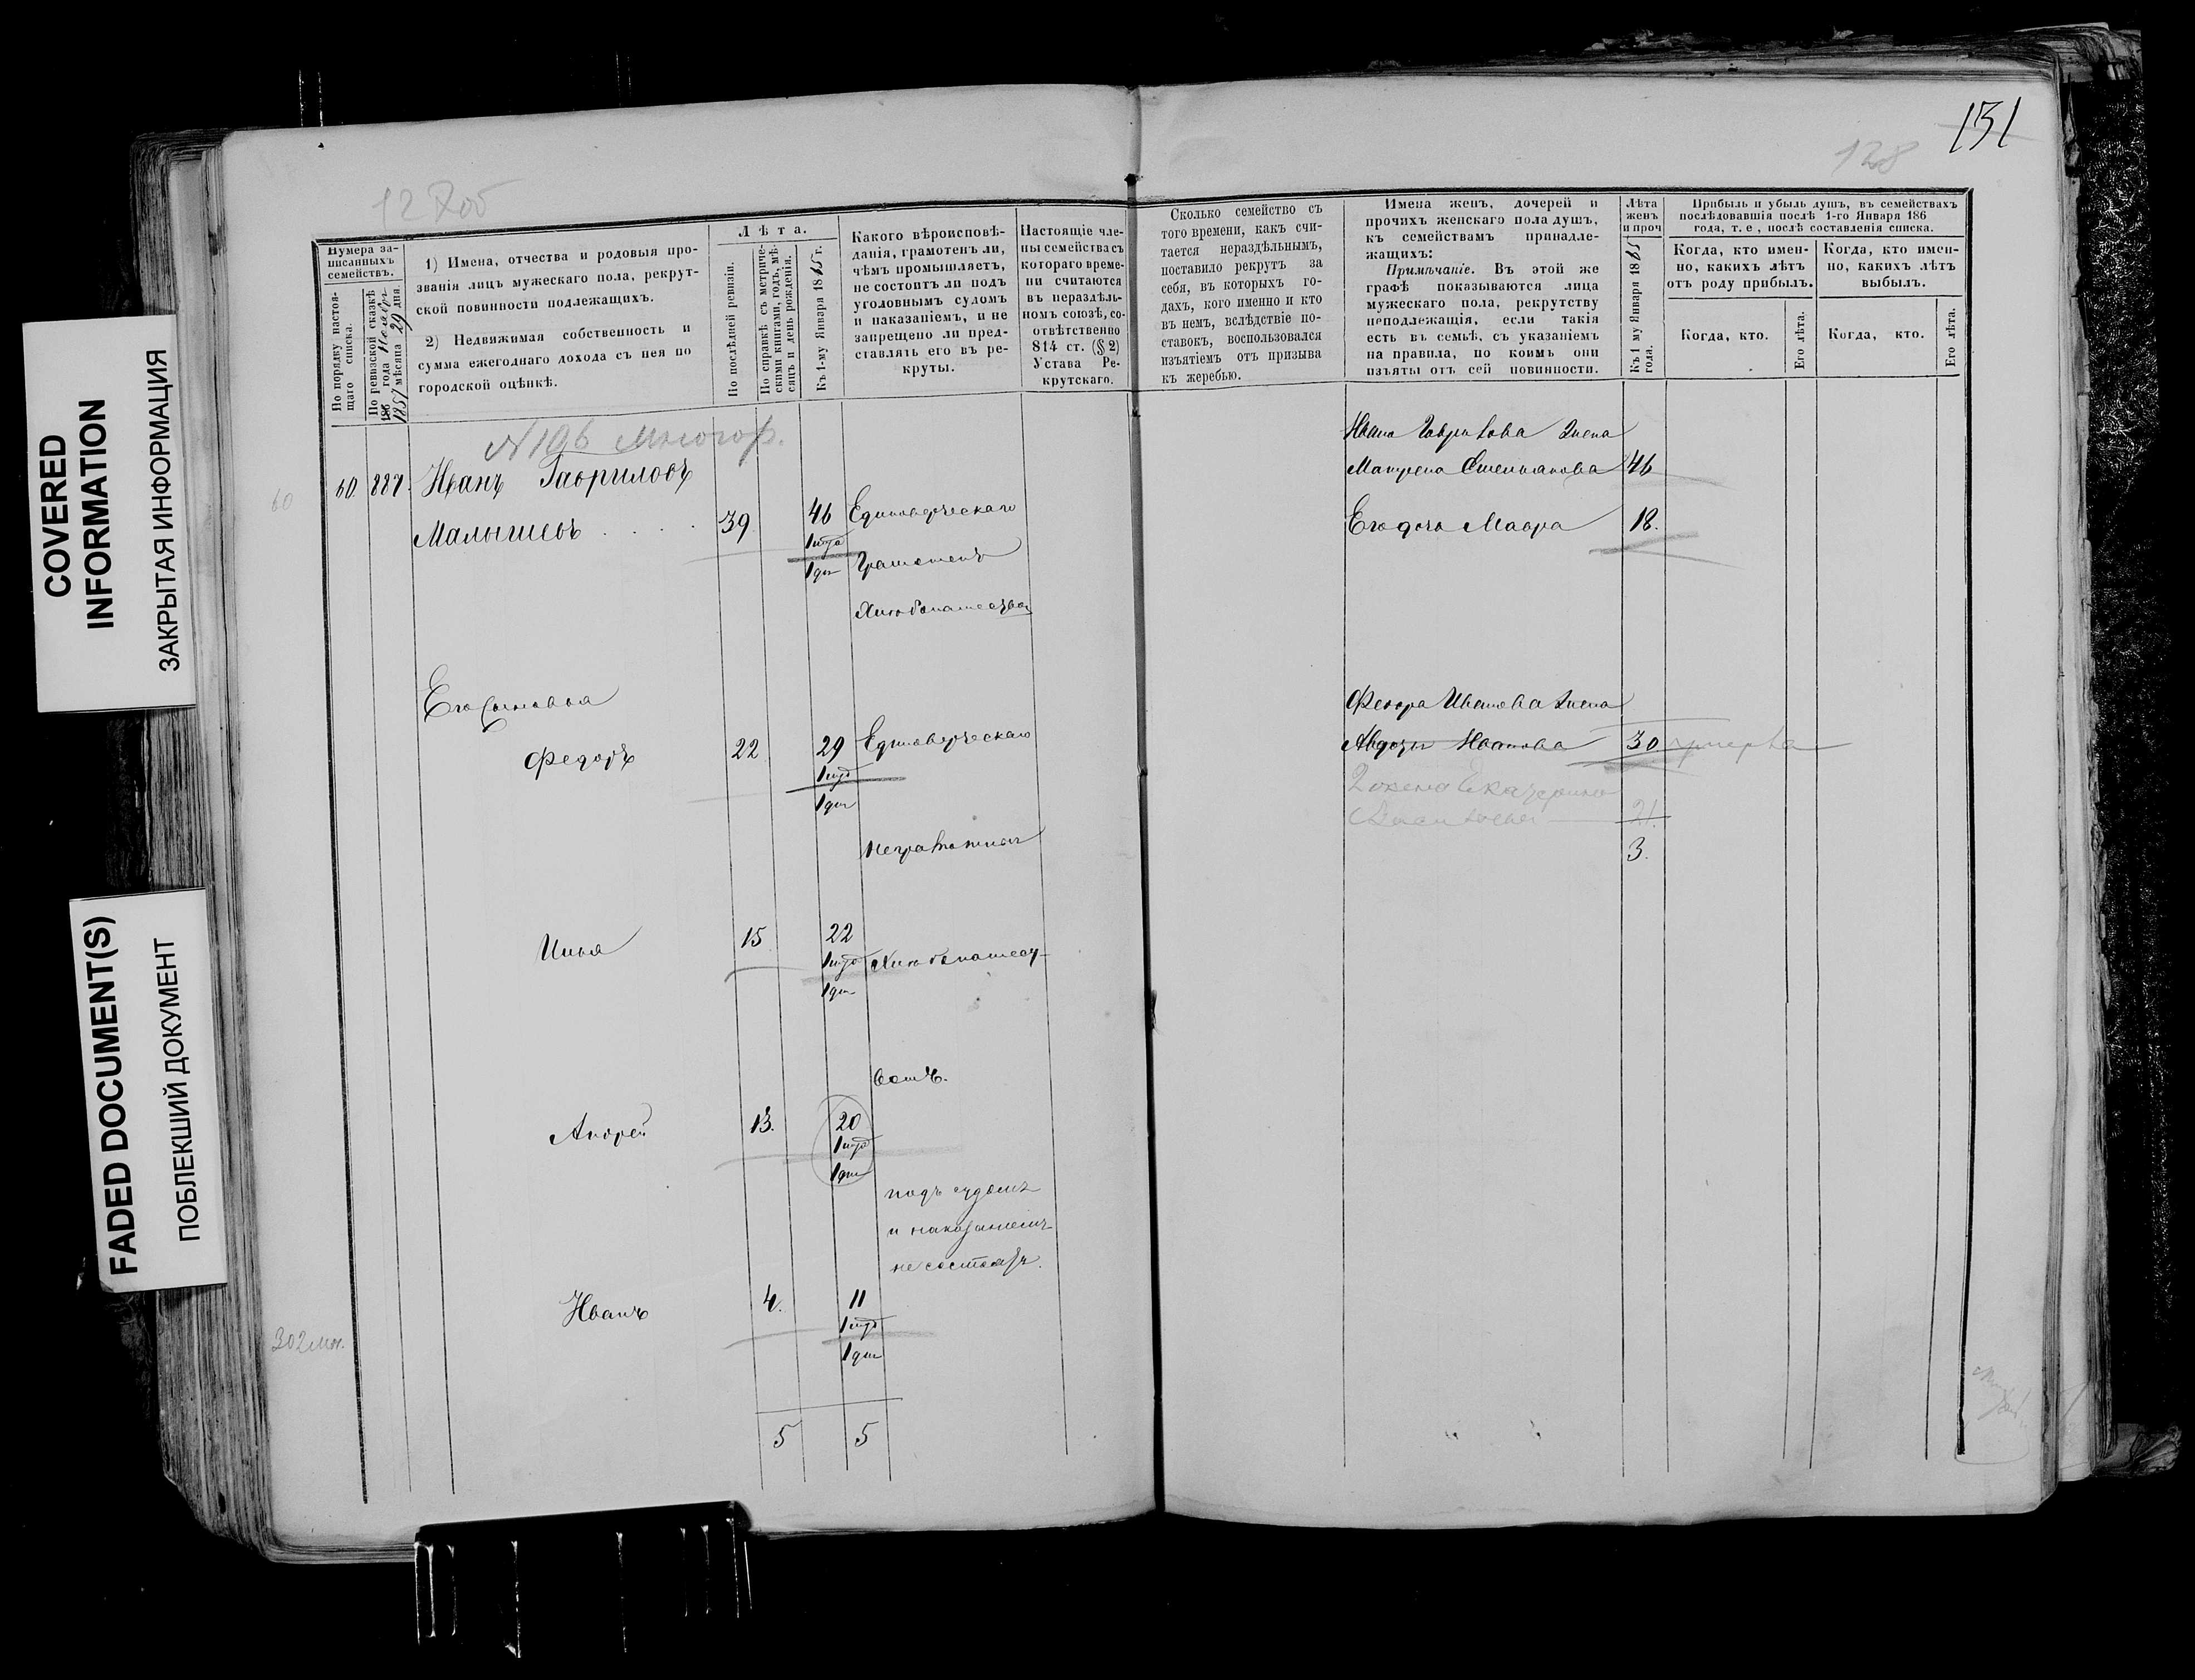 COVERED
INFORMATION
ЗАКРЫТАЯ ИНФОРМАЦИЯ
FADED DOCUMENT(S)
ПОБЛЕКШИЙ ДОКУМЕНТ
131
128
Нумера за-
писанныхъ
семействъ.
По порядку настоя-
щаго списка.
По ревизской сказкѣ
186 года Ноября
1857 мѣсяца 29 дня.
1) Имена, отчества и родовыя про-
званія лицъ мужескаго пола, рекрут-
ской повинности подлежащихъ.
2) Недвижимая собственность и
сумма ежегоднаго дохода съ нея по
городской оцѣнкѣ.
Лѣта.
По послѣдней ревизіи.
По справкѣ съ метриче-
скими книгами, годъ, мѣ-
сяцъ и день рожденія.
Къ 1-му Января 1865 г.
Какого вѣроисповѣ-
данія, грамотенъ ли,
чѣмъ промышляетъ,
не состоитъ ли подъ
уголовнымъ судомъ
и наказаніемъ, и не
запрещено ли пред-
ставлять его въ ре-
круты.
Настоящіе чле-
ны семейства съ
котораго време-
ни считаются
въ нераздѣль-
номъ союзѣ, со-
отвѣтственно
814 ст. (§ 2)
Устава Ре-
крутскаго.
Сколько семейство съ
того времени, какъ счи-
тается нераздѣльнымъ,
поставило рекрутъ за
себя, въ которыхъ го-
дахъ, кого именно и кто
въ немъ, вслѣдствіе по-
ставокъ, воспользовался
изъятіемъ отъ призыва
къ жеребью.
Имена женъ, дочерей и
прочихъ женскаго пола душъ,
къ семействамъ принадле-
жащихъ:
Примѣчаніе. Въ этой же
графѣ показываются лица
мужескаго пола, рекрутству
неподлежащія, если такія
есть въ семьѣ, съ указаніемъ
на правила, по коимъ они
изъяты отъ сей повинности.
Лѣта
женъ
и проч
Къ 1 му Января 1865
года.
Прибыль и убыль душъ, въ семействахъ
послѣдовавшія послѣ 1-го Января 186
года, т. е, послѣ составленія списка.
Когда, кто имен-
но, какихъ лѣтъ
отъ роду прибылъ.
Когда, кто имен-
но, какихъ лѣтъ
выбылъ.
Когда, кто.
Его лѣта.
Когда, кто.
Его лѣта.
N 196
60
60 887. Иванъ Гавриловъ
Малышевъ 39 46 Единоверческаго
Грамотенъ
Хлебопашества
Его Сыновья
Федоръ 22 29 Единоверческаго
неграмотны
Илья 15 22 Хлебопашест-
вомъ.
Андрей 13. 20
подъ судомъ
и наказаніемъ
не состоятъ.
Иванъ 4. 11
302
5 5
Ивана Гаврилова Жена
Матрена Степанова 46
Его дочь Мавра 18.
Федора Иванова Жена
Авдотья Иванова 30 умерла
2 жена Екатерина
21.
3.